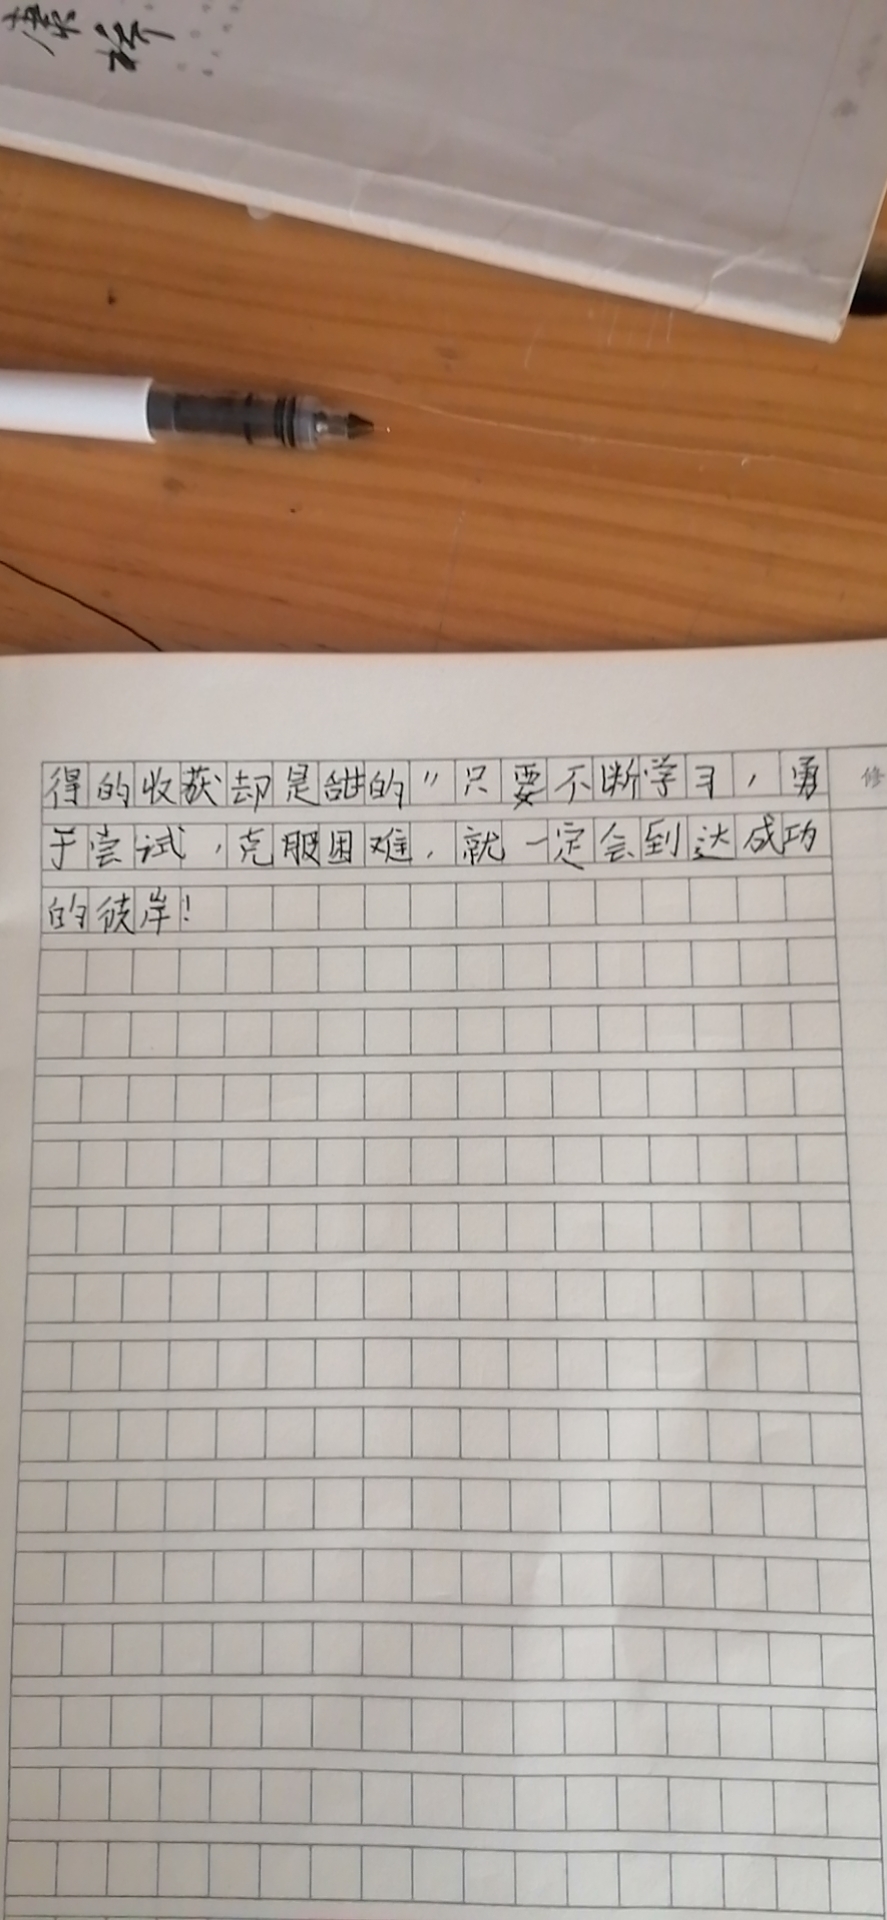 得的收获却是甜的”只要不断学习，勇
于尝试，克服困难，就一定会到达成功
的彼岸！
修